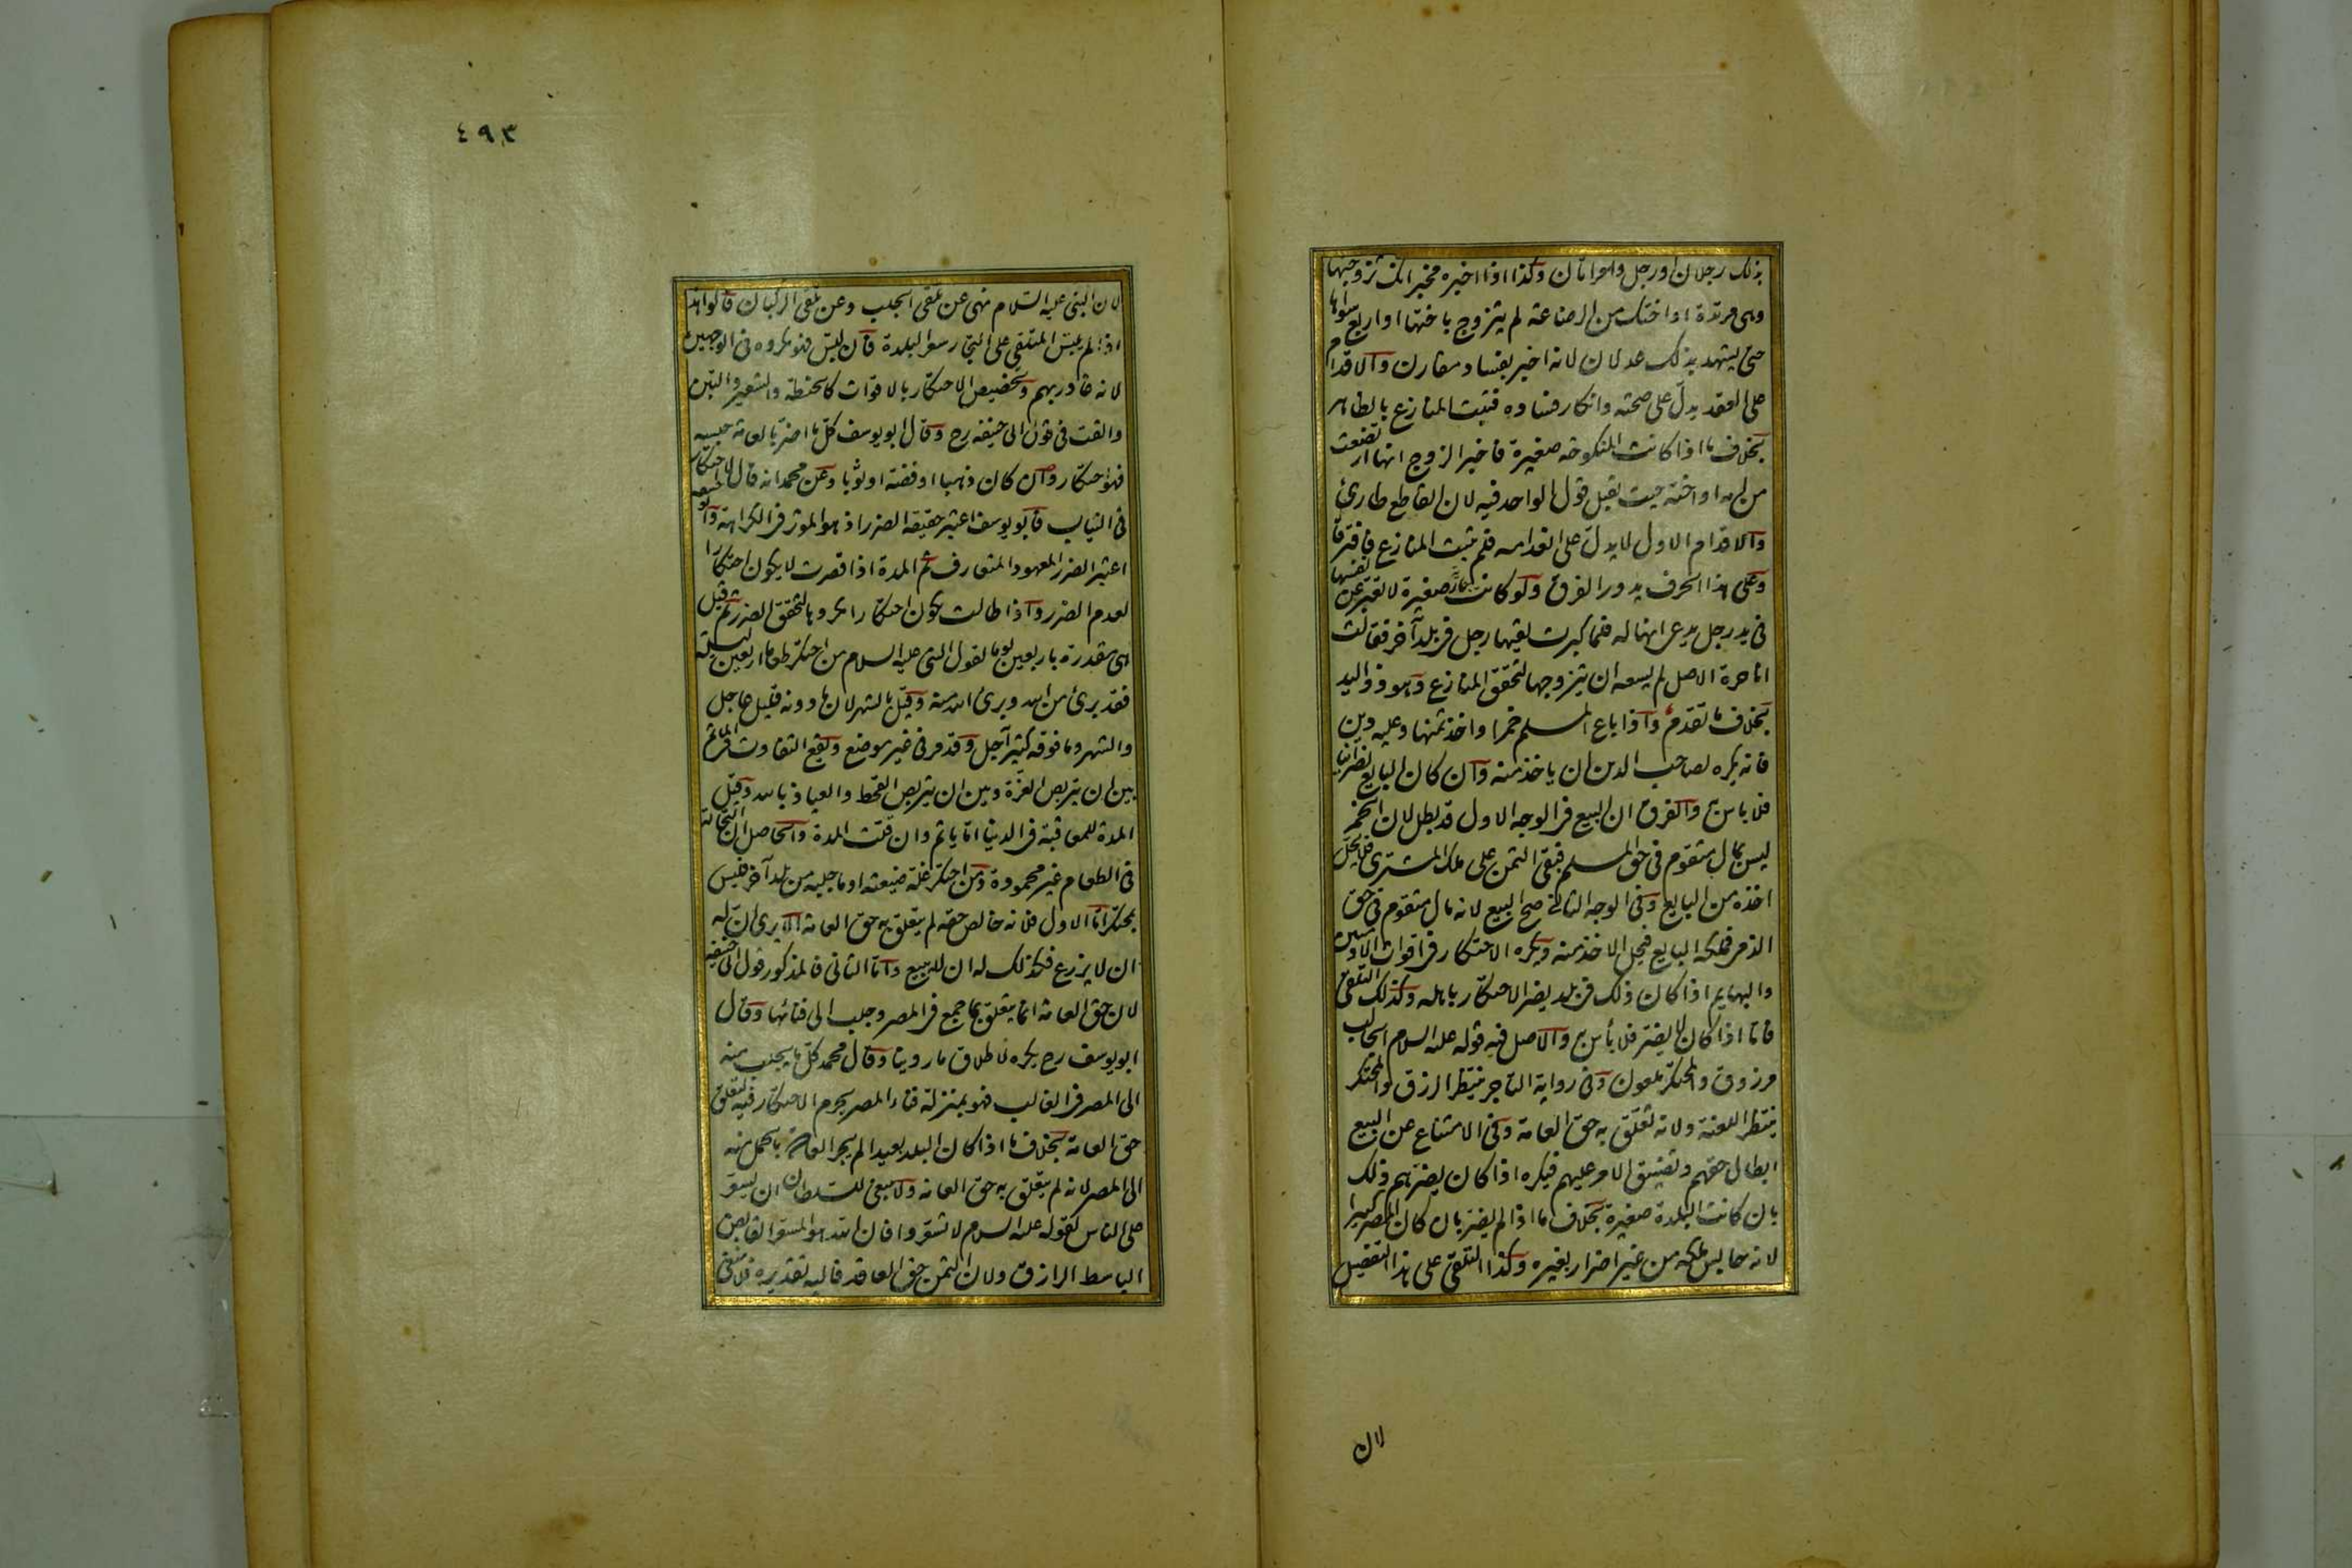 بذلك رجلان او رجل وامراتان وكذا اذا اخبره مخبر انك تزوجتها
وهى مرتدة او اختك من الرضاعة لم يتزوج باختها او اربع سواها
حتى يشهد بذلك عدلان لانه اخبر بفساد مقارن والاقدام
على العقد يدل على صحته وانكار فساده فيثبت المنازع بالظاهر
بخلاف ما اذا كانت المنكوحة صغيرة فاخبر الزوج انها ارتضعت
من امه او اخته حيث يقبل قول الواحد فيه لان القاطع طارئ
والاقدام الاول لا يدل على انعدامه فلم يثبت المنازع فافترقا
وعلى هذا الحرف يدور الفرق ولو كانت جارية صغيرة لا تعبر عن نفسها
فى يد رجل يدعى انها له فلما كبرت لقيها رجل فى بلد آخر فقالت
انا حرة الاصل لم يسعه ان يتزوجها لتحقق المنازع وهو ذو اليد
بخلاف ما تقدم واذا باع المسلم خمرا واخذ ثمنها وعليه دين
فانه يكره لصاحب الدين ان ياخذ منه وان كان البايع نصرانيا
فلا باس به والفرق ان البيع فى الوجه الاول قد بطل لان الخمر
ليس بمال متقوم فى حق المسلم فبقى الثمن على ملك المشترى فلا يحل
اخذه من البايع وفى الوجه الثانى صح البيع لانه مال متقوم فى حق
الذمى فملكه البايع فيحل الاخذ منه ويكره الاحتكار فى اقوات الآدميين
والبهايم اذا كان ذلك فى بلد يضر الاحتكار باهله وكذلك التلقى
فاما اذا كان لا يضر فلا بأس به والاصل فيه قوله عليه السلام الجالب
مرزوق والمحتكر ملعون وفى رواية التاجر ينتظر الرزق والمحتكر
ينتظر اللعنة ولانه تعلق به حق العامة وفى الامتناع عن البيع
ابطال حقهم وتضييق الامر عليهم فيكره اذا كان يضر بهم ذلك
بان كانت البلدة صغيرة بخلاف ما اذا لم يضر بان كان المصر كبيرا
لانه حابس ملكه من غير اضرار بغيره وكذا التلقى على هذا التفصيل
لان
٤٩٣
لان النبى عليه السلام نهى عن تلقى الجلب وعن تلقى الركبان قالوا هذا
اذا لم يلبس المتلقى على التجار سعر البلدة فان لبس فهو مكروه فى الوجهين
لانه غادر بهم وتخصيص الاحتكار بالاقوات كالحنطة والشعير والتبن
والقت فى قول ابى حنيفه رح وقال ابو يوسف كل ما اضر بالعامة حبسه
فهو احتكار وان كان ذهبا او فضة او ثوبا وعن محمد انه قال لا احتكار
فى الثياب فابو يوسف اعتبر حقيقة الضرر اذ هو الموثر فى الكراهة وابو حنيفه
اعتبر الضرر المعهود المتعارف ثم المدة اذا قصرت لا يكون احتكارا
لعدم الضرر واذا طالت يكون احتكارا مكروها لتحقق الضرر ثم قيل
هى مقدرة باربعين يوما لقول النبى عليه السلام من احتكر طعاما اربعين ليلة
فقد برئ من الله وبرئ الله منه وقيل بالشهر لان ما دونه قليل عاجل
والشهر وما فوقه كثير آجل وقد مر فى غير موضع ويقع التفاوت فى الماثم
بين ان يتربص العزة وبين ان يتربص القحط والعياذ بالله وقيل
المدة للمعاقبة فى الدنيا اما ياثم وان قلت المدة والحاصل ان التجارة
فى الطعام غير محمودة ومن احتكر غلة ضيعته او ما جلبه من بلد آخر فليس
بمحتكر اما الاول فلانه خالص حقه لم يتعلق به حق العامة الا يرى ان له
ان لا يزرع فكذلك له ان لا يبيع واما الثانى فالمذكور قول ابى حنيفه
لان حق العامة انما يتعلق بما جمع فى المصر وجلب الى فنائها وقال
ابو يوسف رح يكره لاطلاق ما روينا وقال محمد كل ما يجلب منه
الى المصر فى الغالب فهو بمنزلة فناء المصر يحرم الاحتكار فيه لتعلق
حق العامة بخلاف ما اذا كان البلد بعيدا لم يجر العادة بالحمل منه
الى المصر لانه لم يتعلق به حق العامة ولا ينبغى للسلطان ان يسعر
على الناس لقوله عليه السلام لا تسعروا فان الله هو المسعر القابض
الباسط الرازق ولان الثمن حق العاقد فاليه تقديره فلا ينبغى